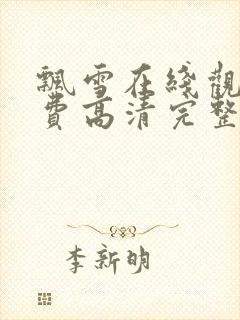 飄雪在綫觀
費高清完整
李新明